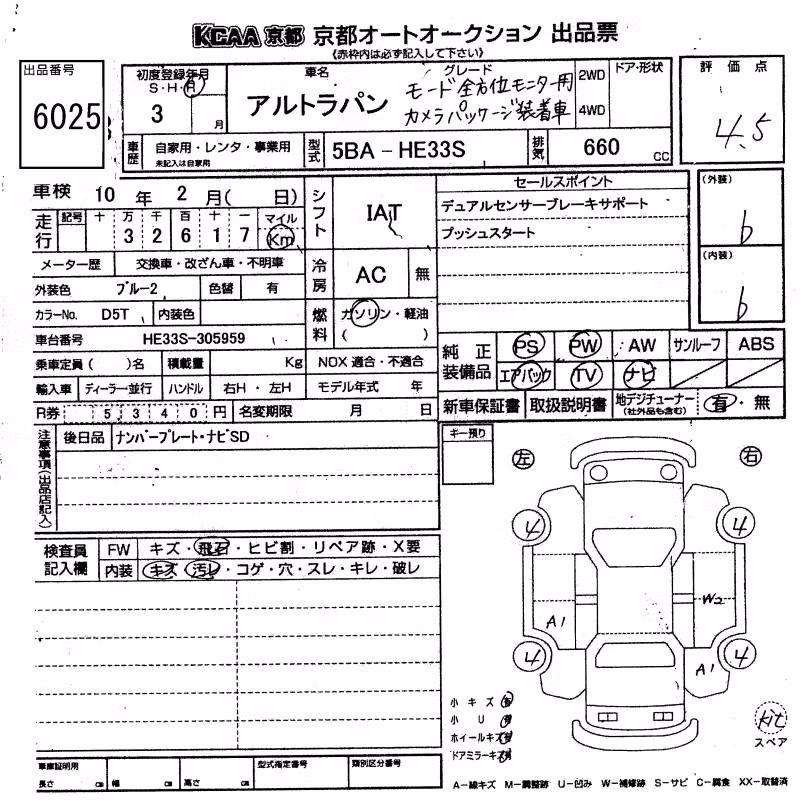 KCAA 京都 京都オートオークション 出品票
《赤枠内は必ず記入して下さい》
出品番号
6025
初度登録年月
S・H・R
3 月
車名
アルトラパン
グレード
モード 全方位モニター用
カメラパッケージ装着車
2WD
4WD
ドア・形状
評価点
4.5
車歴
自家用・レンタ・事業用
未記入は自家用
型式
5BA-HE33S
排気
660 CC
車検 10 年 2 月( 日)
走行
記号 十 万 千 百 十 一 マイル
3 2 6 1 7 Km
シフト
IAT
セールスポイント
デュアルセンサーブレーキサポート
プッシュスタート
(外装)
b
(内装)
b
メーター歴 交換車・改ざん車・不明車
冷房
AC 無
外装色 ブルー2 色替 有
カラーNo. D5T 内装色
燃料
ガソリン・軽油
( )
車台番号 HE33S-305959
乗車定員( )名 積載量 Kg NOX 適合・不適合
輸入車 ディーラー・並行 ハンドル 右H・左H モデル年式 年
R券 5340円 名変期限 月 日
純正装備品
PS PW AW サンルーフ ABS
エアバック TV ナビ
新車保証書 取扱説明書 地デジチューナー (社外品も含む) 有・無
注意事項(出品店記入)
後日品 ナンバープレート・ナビSD
キー預り
左 右
4 4
A1 W2
4 4
A1
検査員記入欄
FW キズ・飛石・ヒビ割・リペア跡・X要
内装 キズ・汚レ・コゲ・穴・スレ・キレ・破レ
小キズ
小U
ホイールキズ
ドアミラーキズ
Kit
スペア
車庫証明用
長さ cm 幅 cm 高さ cm
型式指定番号
類別区分番号
A-線キズ M-調整跡 U-凹み W-補修跡 S-サビ C-腐食 XX-取替済